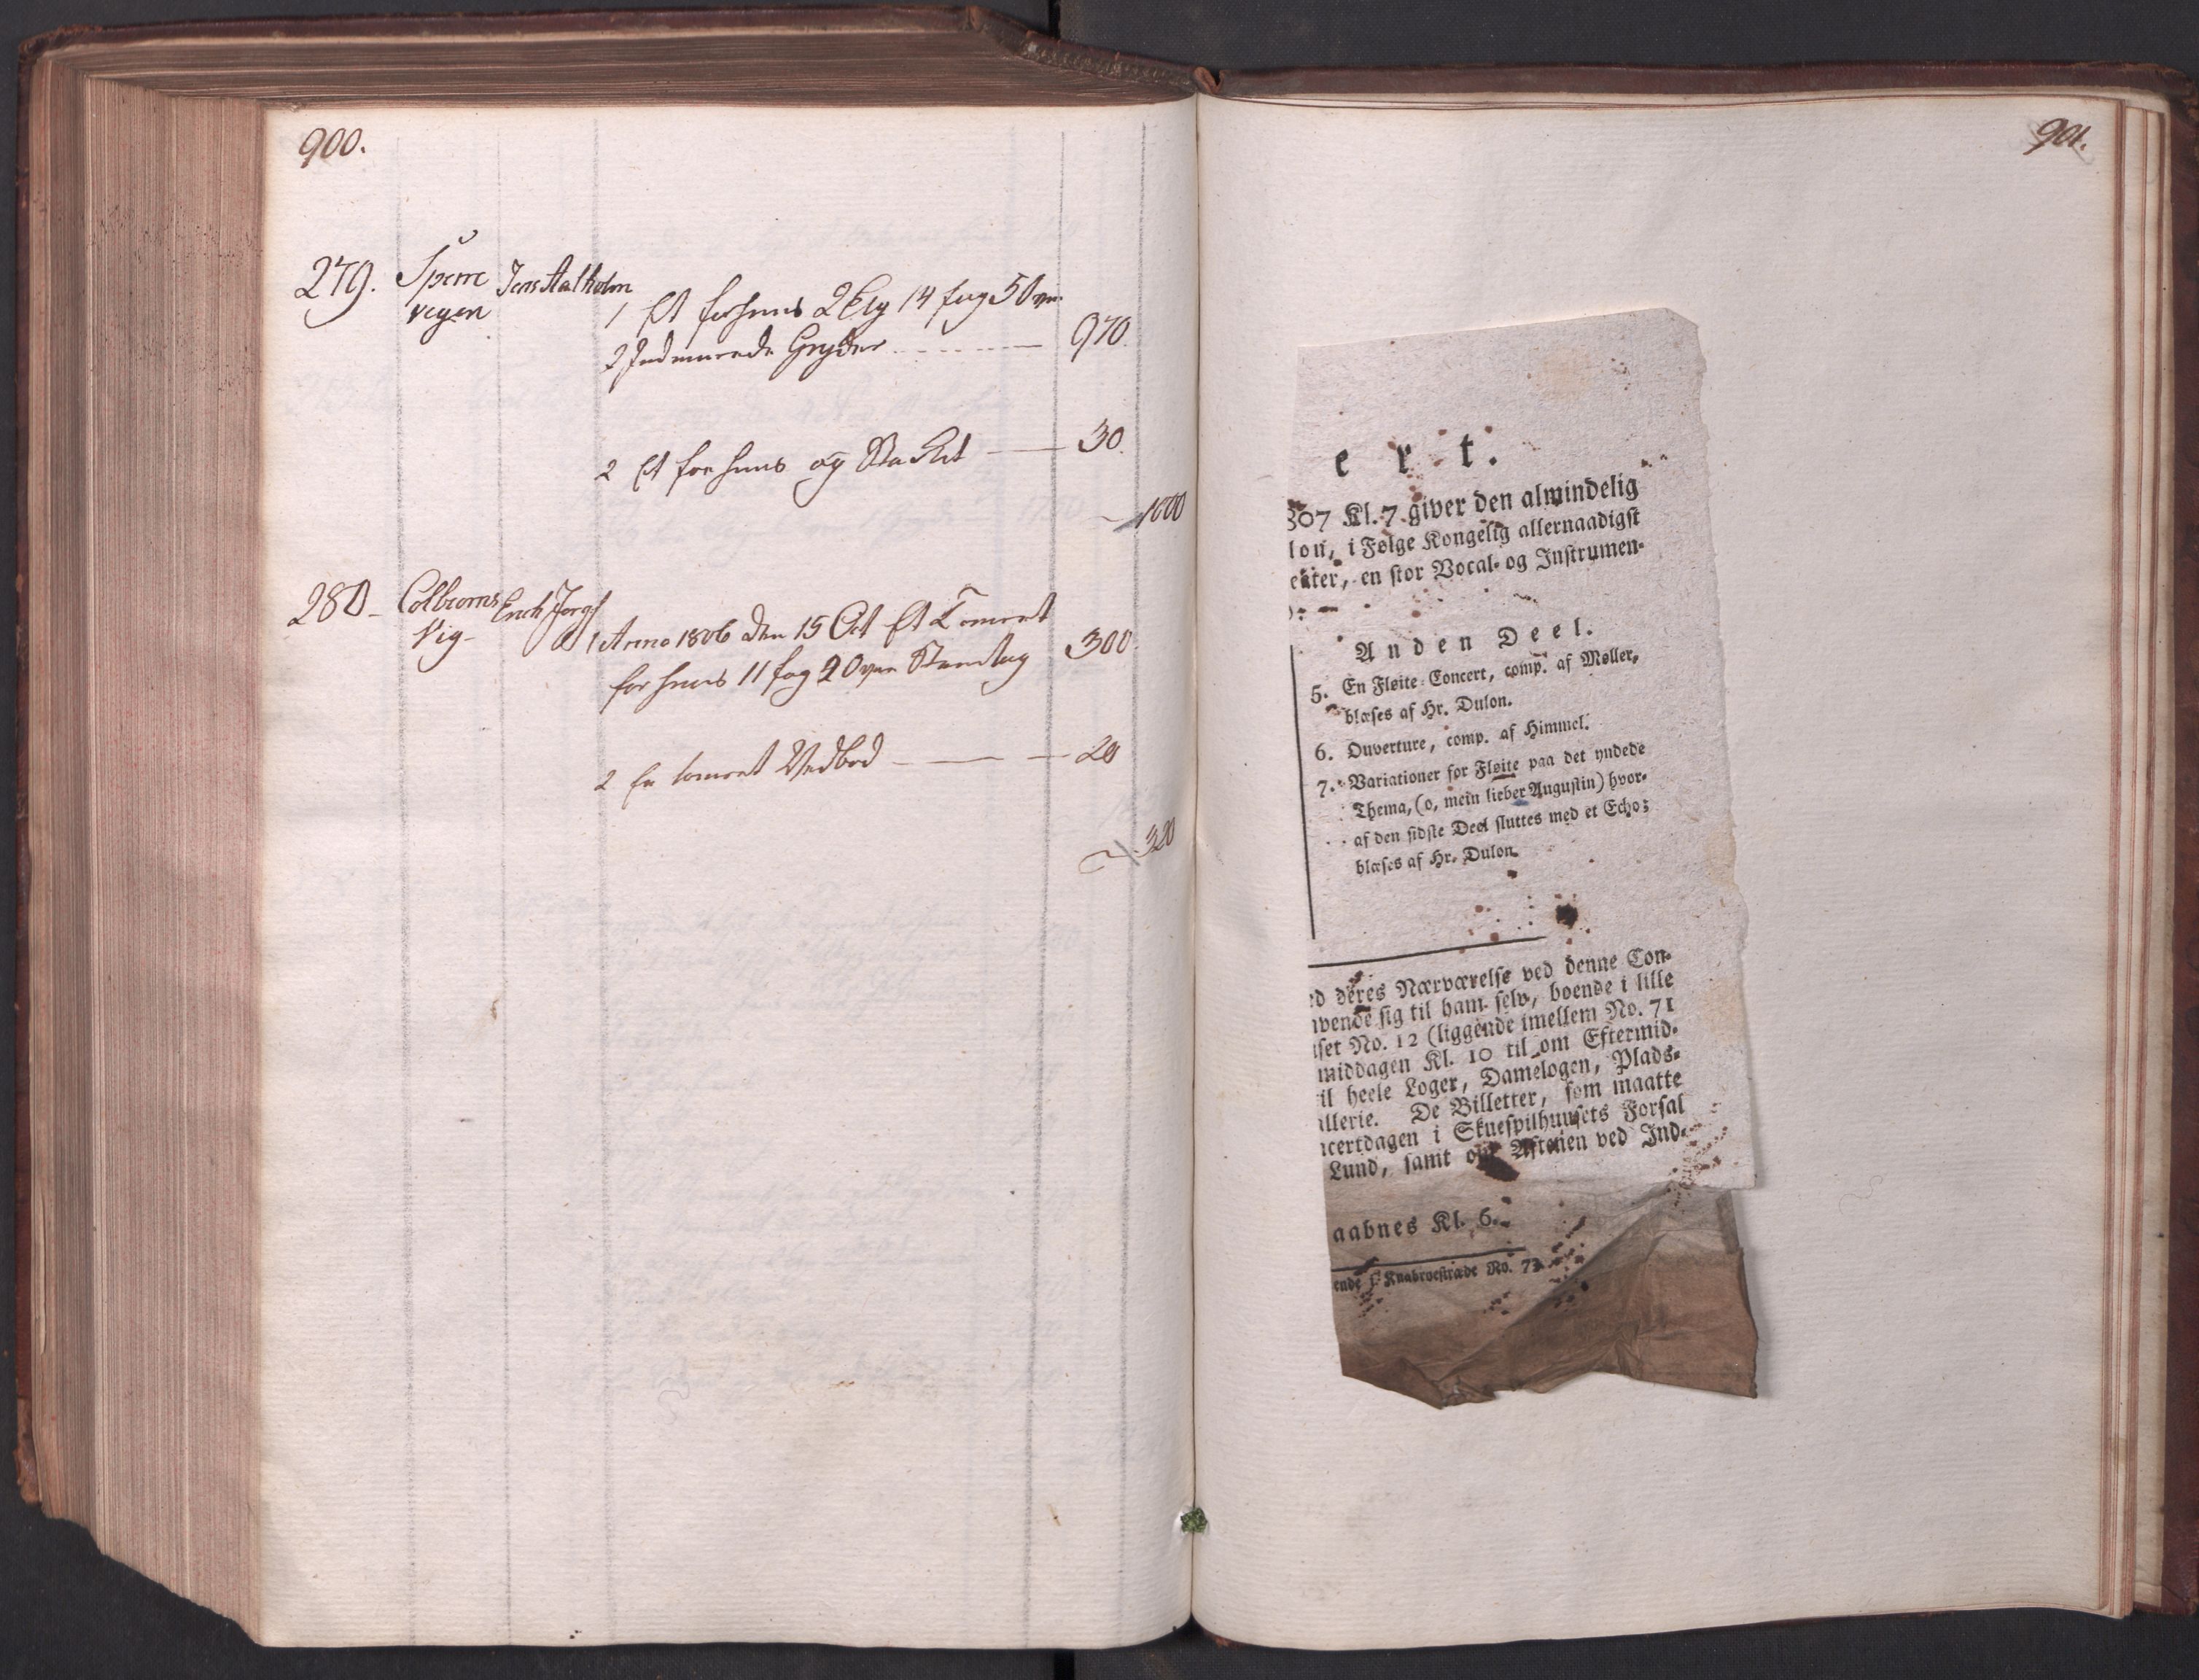 900.
279. Sperre
vigen
Jens Aalholm
1 Et forhuus 2 Etg 14 fag 5 Ovne
2 Indmurede Gryder 970.
2 Et forhuus og Stacket 30.
1000
280 Colbiorns
Vig
Erich
1 Anno 1806 den 15 Oct Et Tomret
forhuus 11 fag 2 Ovne 300
2 En tomret Vedbod 20
320
901.
ert.
807 Kl. 7 giver den almindelig
lon, i Følge Kongelig allernaadigst
eater, en stor Vocal- og Instrumen-
):
Anden Deel.
5. En Fløite-Concert, comp. af Møller,
blæses af Hr. Dulon.
6. Ouverture, comp. af Himmel.
7. Variationer for Fløite paa det yndede
Thema, (o, mein lieber Augustin) hvor-
af den sidste Deel sluttes med et Echo;
blæses af Hr. Dulon.
ed deres Nærværelse ved denne Con-
wende sig til ham selv, boende i lille
uset No. 12 (liggende imellem No. 71
middagen Kl. 10 til om Eftermid-
til heele Loger, Damelogen, Plads-
allerie. De Billetter, som maatte
ncertdagen i Skuespilhuusets Forsal
Lund, samt om Aftenen ved Ind-
aabnes Kl. 6.
ende i Knabroestræde No. 73